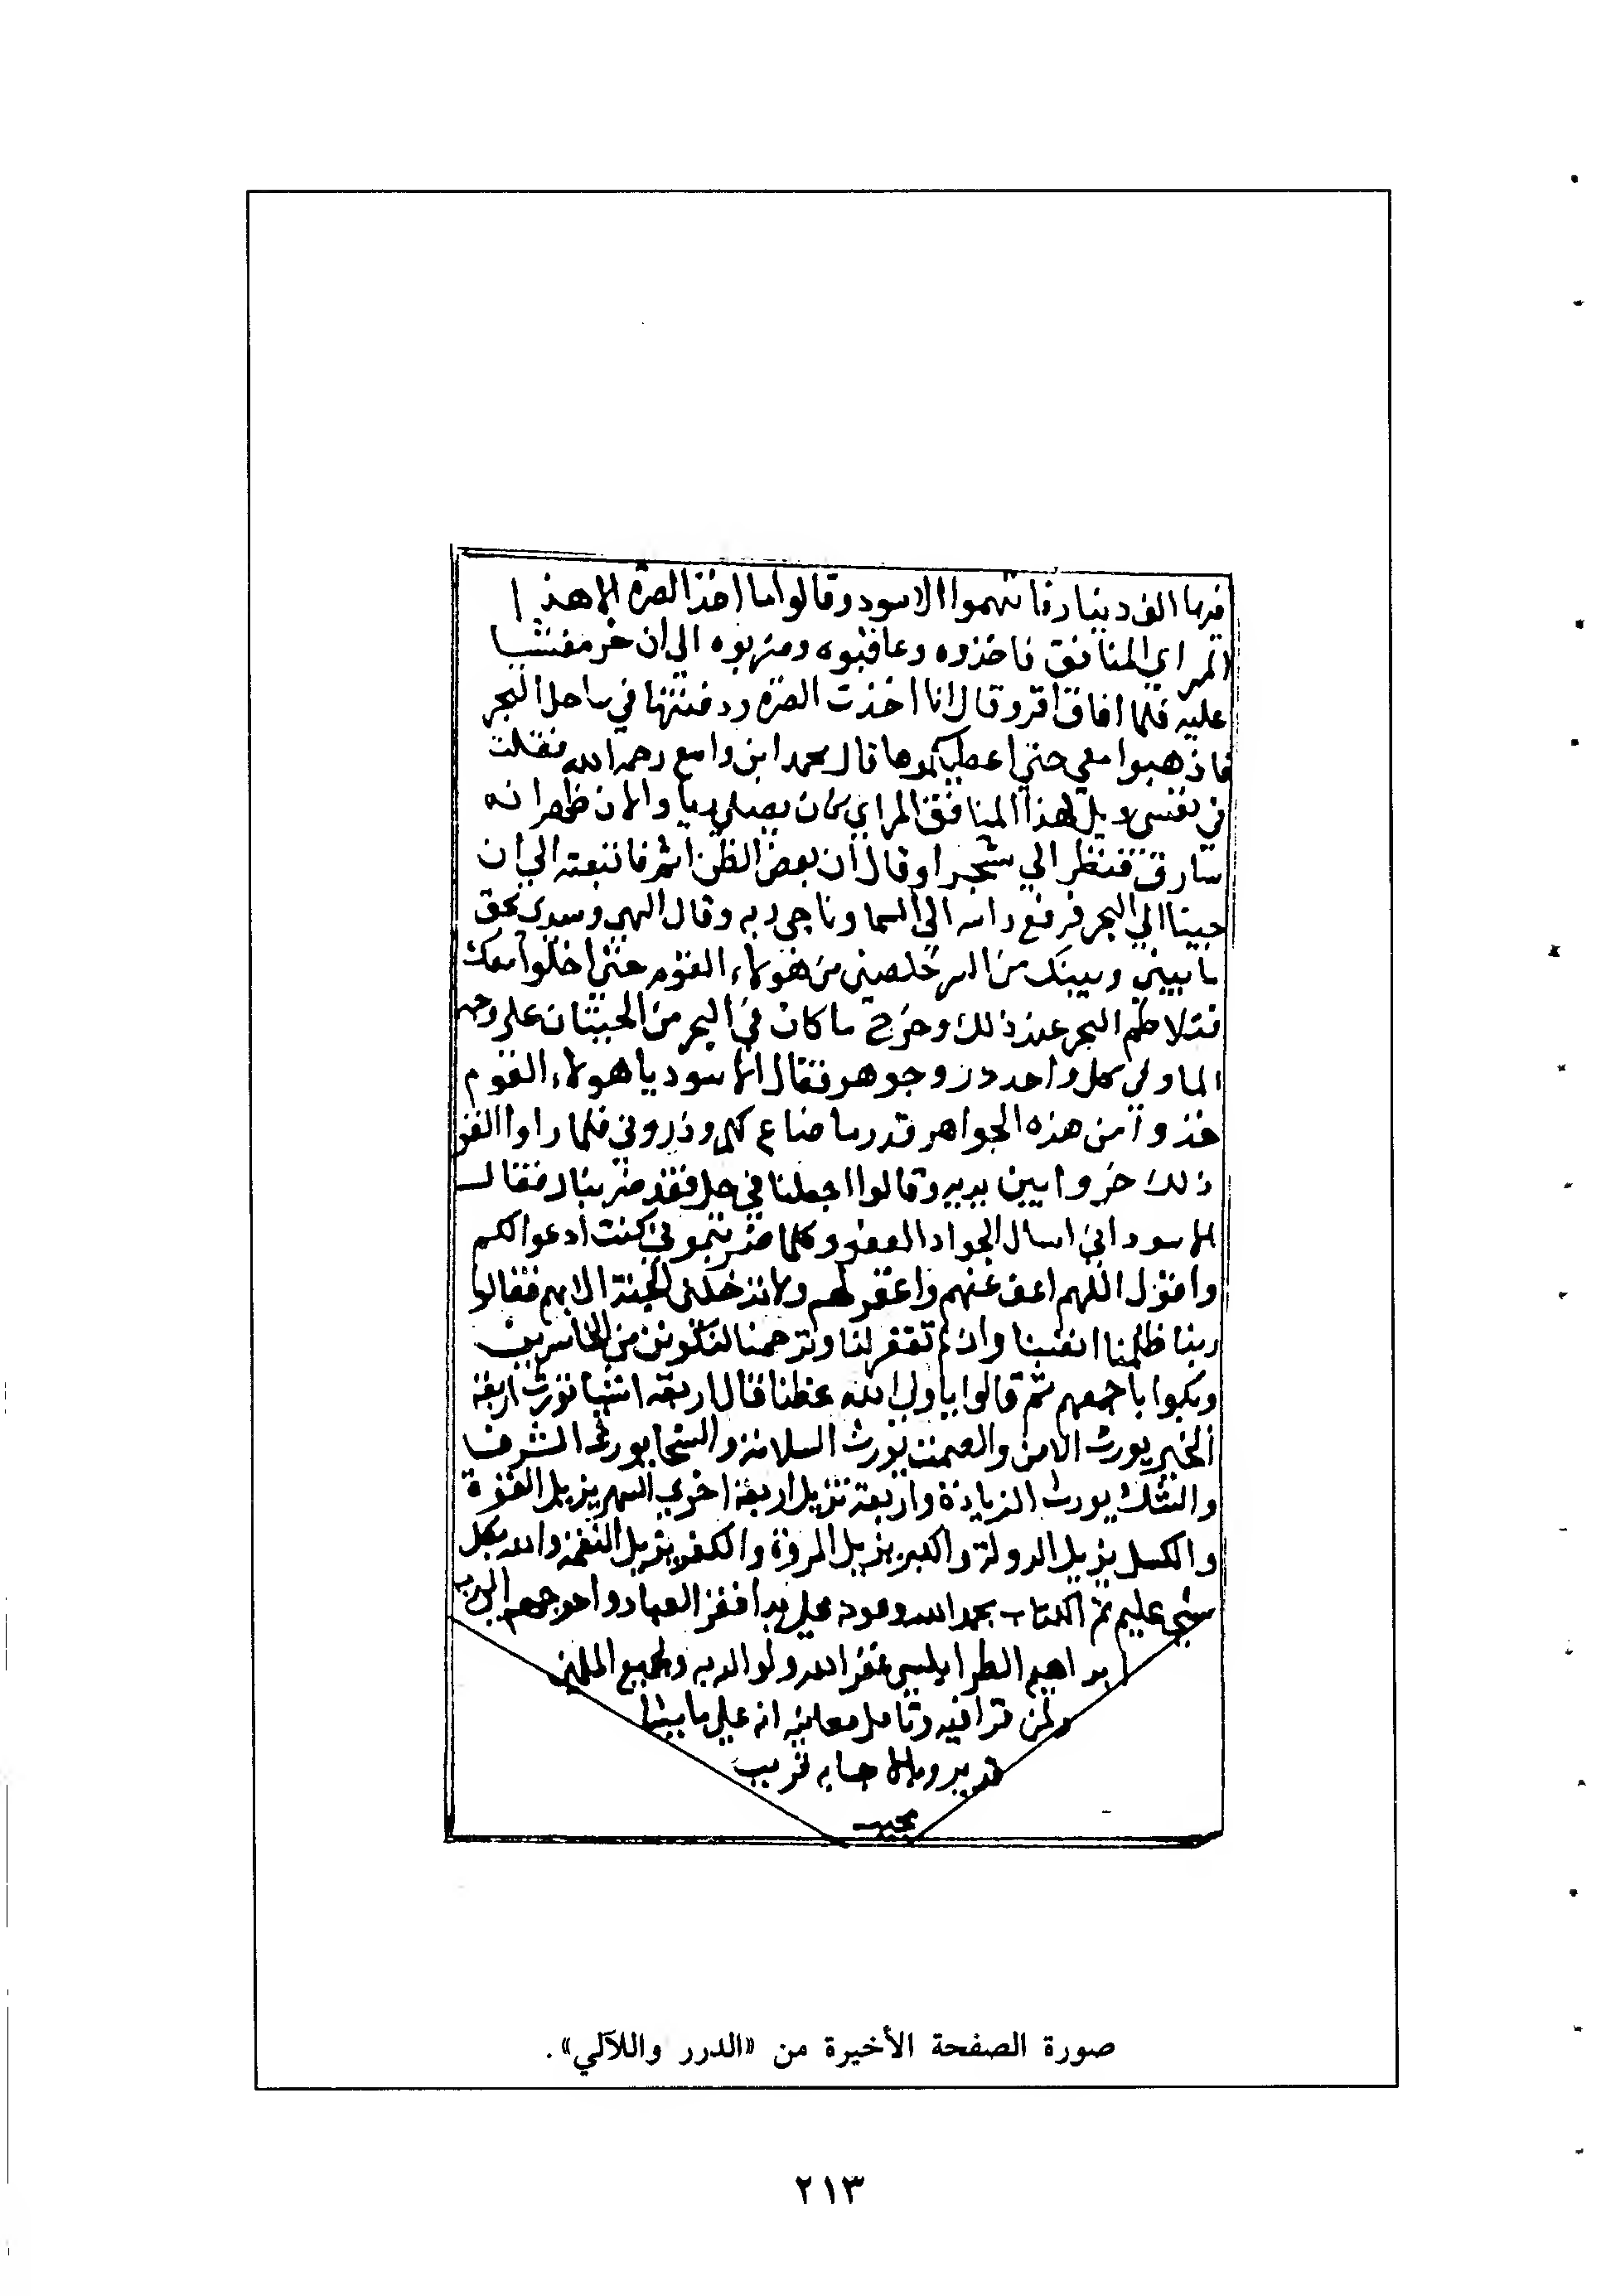 فيها الف دينار فاتهموا الاسود وقالوا ما اخذ الصره الا هذا
المراي المنافق فاخذوه وعاقبوه وضربوه الي ان خر مغشيا
عليه فلما افاق اقر وقال انا اخذت الصره ودفنتها في ساحل البحر
فاذهبوا معي حتي اعطيكموها قال محمد ابن واسع رحمه الله فقلت
في نفسي ويل لهذا المنافق المراي كان يصلي ريا والان ظهر انه
سارق فنظر الي شجرا وقال ان بعض الظن اثم فاتبعته الي ان
جينا الي البحر فرفع راسه الي السما وناجي ربه وقال الهي وسيدي بحق
ما بيني وبينك من السر خلصني من هولاء القوم حتي اخلوا معك
فتلاطم البحر عند ذلك وخرج ما كان في البحر من الحيتان علي وجه
الما وفي كل واحد در وجوهر فقال الاسود يا هولاء القوم
خذوا من هذه الجواهر قدر ما ضاع لكم وذروني فلما راوا القوم
ذلك خروا بين يديه وقالوا اجعلنا في حل فقد ضربناك فقال
الاسود اني اسال الجواد العفو وكلما ضربتموني كنت ادعوا لكم
واقول اللهم اعف عنهم واغفر لهم ولا تدخلني الجنة الا بهم فقالوا
ربنا ظلمنا انفسنا وان لم تغفر لنا وترحمنا لنكونن من الخاسرين
وبكوا باجمعهم ثم قالوا يا ولي الله عظنا فقال اربعة اشيا تورث اربعة
الخير يورث الامن والصمت يورث السلامة والسخا يورث الشرف
والشكر يورث الزيادة واربعة تزيل اربعة اخري السهر يزيل القوة
والكسل يزيل الدولة والكبر يزيل المروة والكفر يزيل النعمة والله بكل
شي عليم تم الكتاب بحمد الله وعونه علي يد افقر العباد واحوجهم الي ربه
ابراهيم الطرابلسي غفر الله له ولوالديه ولجميع المسلمين
ولمن قرا فيه وتامل معانيه انه علي ما يشا
قدير وبالاجابه قريب
مجيب
صورة الصفحة الأخيرة من «الدرر واللآلي».
٢١٣